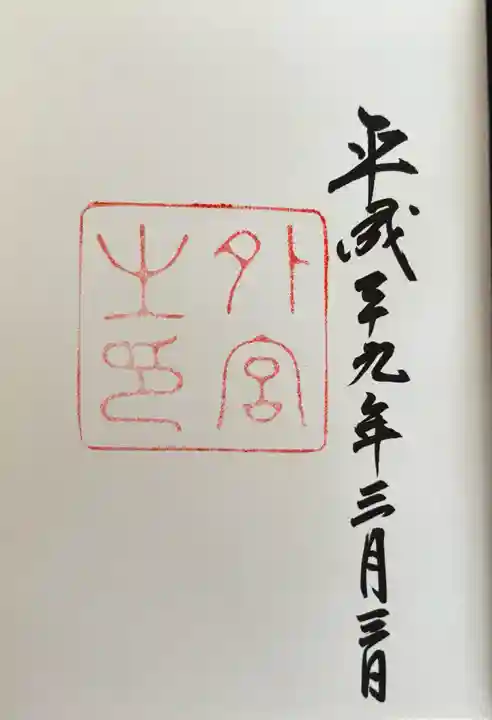 平成二十九年三月三日
外宮
之印